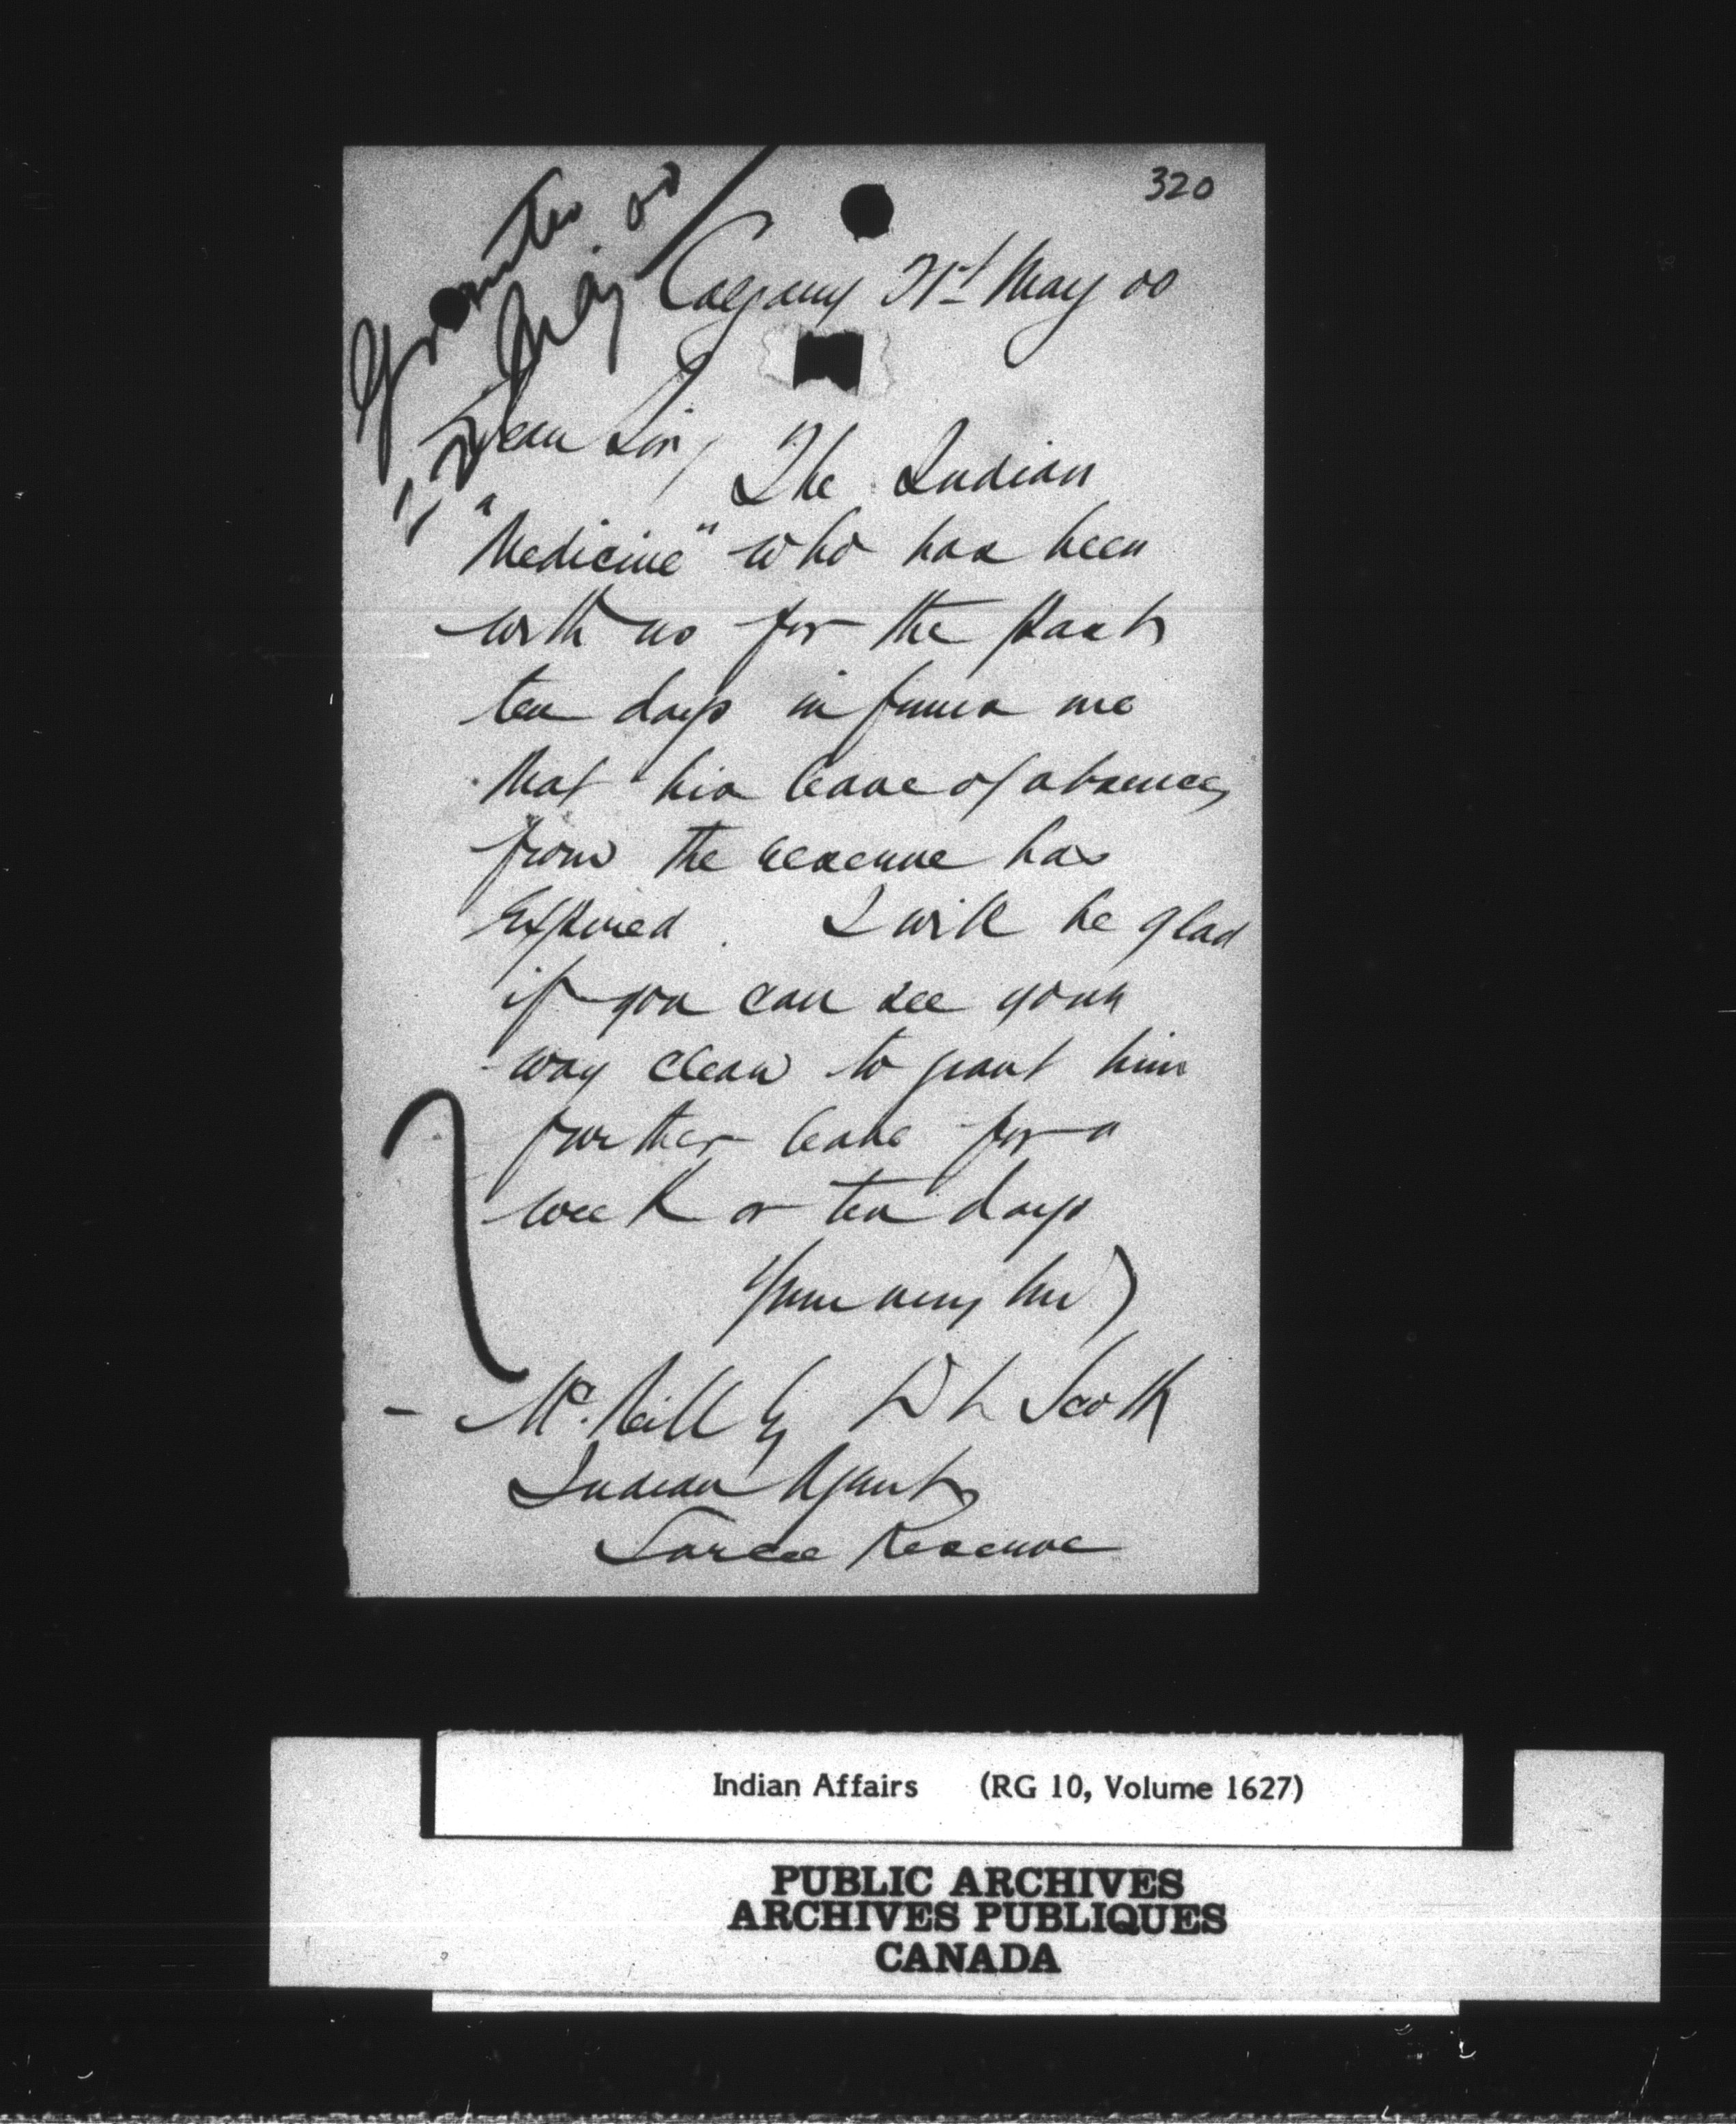 320
Granted
21 May. 00
Calgary 21st May 00
Dear Sir,
The Indian
"Medicine" who has been
with us for the past
ten days informs me
that his leave of absence,
from the reserve has
Expired. I will be glad
if you can see your
way clear to grant him
further leave for a
week or ten days
Yours very truly
McNeill Esq D L Scott
Indian Agent
Sarcee Reserve
Indian Affairs (RG 10, Volume 1627)
PUBLIC ARCHIVES
ARCHIVES PUBLIQUES
CANADA